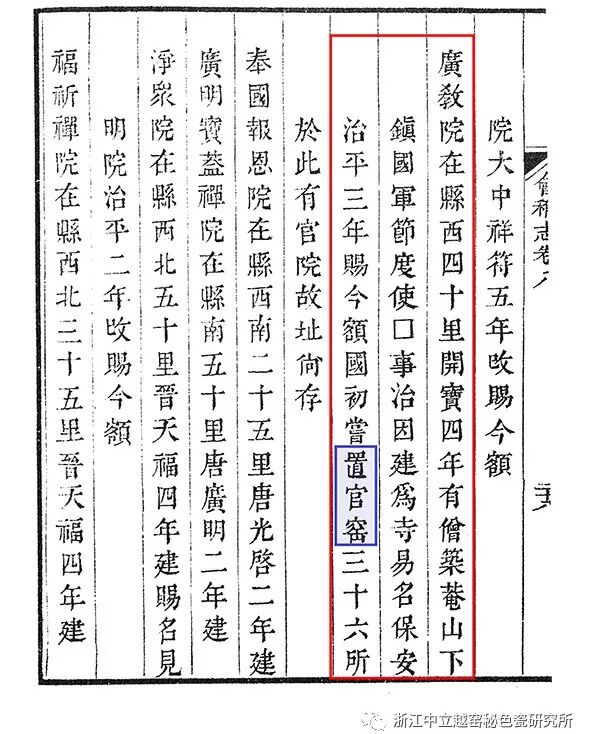 院大中祥符五年改賜今額
廣教院在縣西四十里開寶四年有僧築菴山下
鎮國軍節度使口事治因建爲寺易名保安
治平三年賜今額國初嘗置官窑三十六所
於此有官院故址尚存
奉國報恩院在縣西南二十五里唐光啓二年建
廣明寶蓋禪院在縣南五十里唐廣明二年建
淨衆院在縣西北五十里晉天福四年建賜名見
明院治平二年改賜今額
福祈禪院在縣西北三十五里晉天福四年建
會稽志卷八
浙江中立越窑秘色瓷研究所